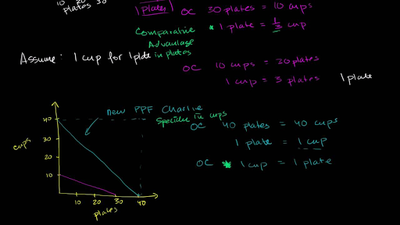 10 20
plates 30
1 plates
OC 30 plates = 10 cups
1 plate = 1/3 cup
Comparative
Advantage
in plates
Assume: 1 cup for 1 plate
OC 10 cups = 30 plates
1 cup = 3 plates
1 plate
new PPF Charlie
Specialize in cups
OC 40 plates = 40 cups
1 plate = 1 cup
OC * 1 cup = 1 plate
cups
40
30
20
10
10 20 30 40
plates